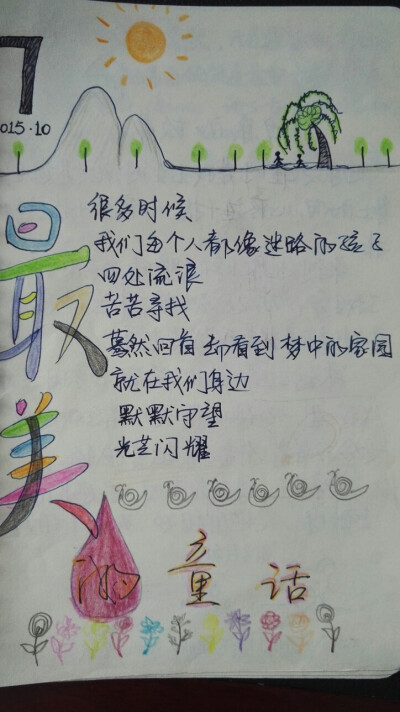 7
2015·10
很多时候
我们每个人都像迷路的孩子
四处流浪
苦苦寻找
蓦然回首却看到梦中的家园
就在我们身边
默默守望
光芒闪耀
最美
的童话